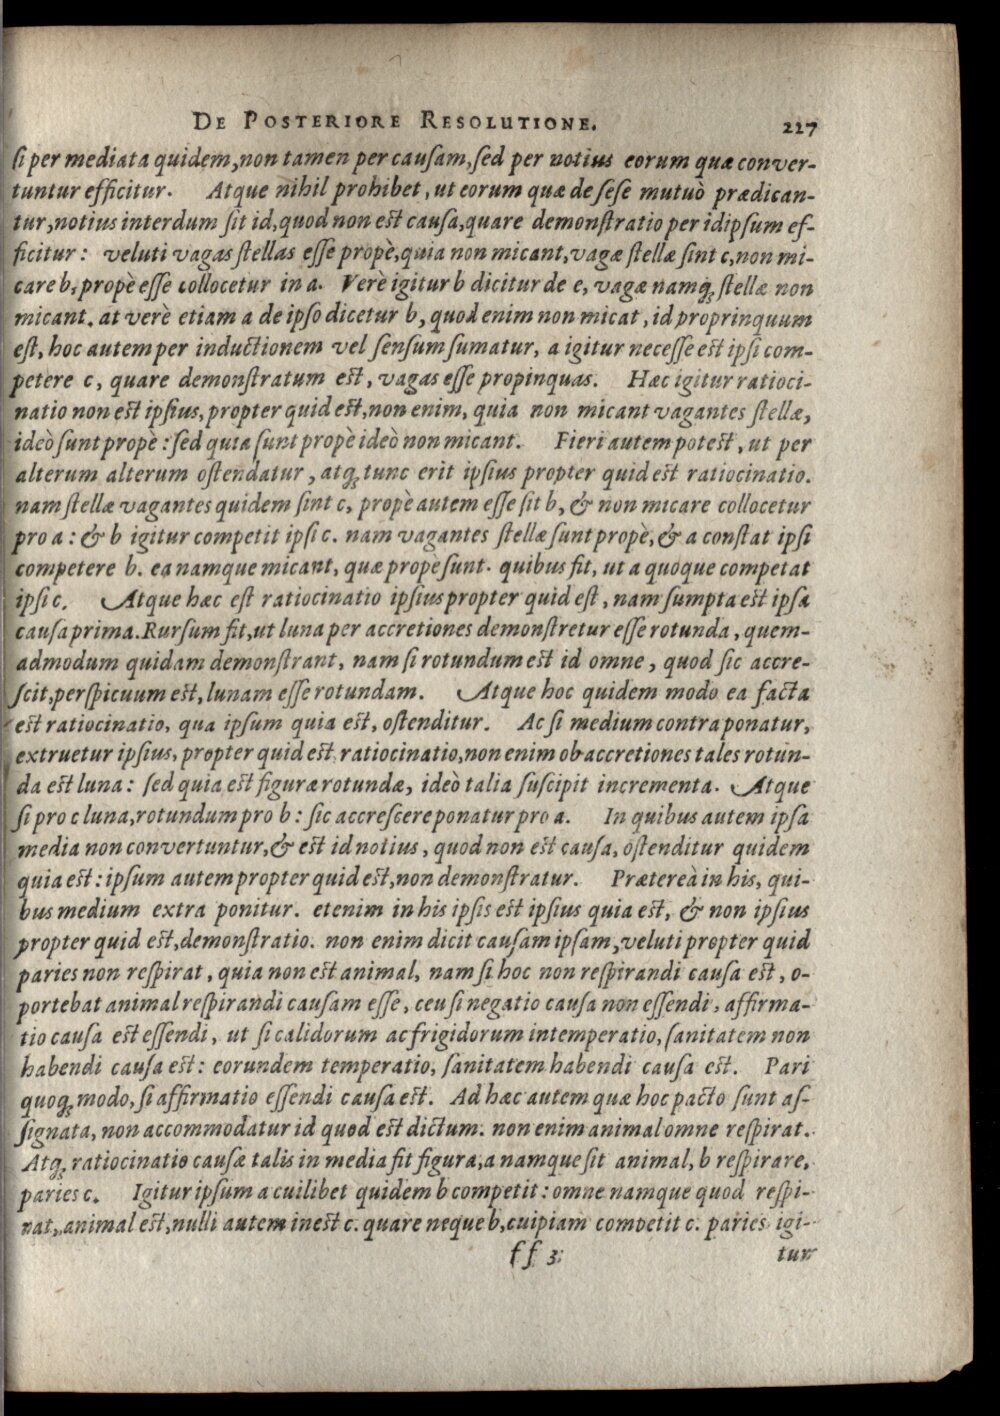 De Posteriore Resolutione. 227
si per mediata quidem, non tamen per causam, sed per notius eorum quæ conver-
tuntur efficitur. Atque nihil prohibet, ut eorum quæ de sese mutuò prædican-
tur, notius interdum sit id, quod non est causa, quare demonstratio per id ipsum ef-
ficitur: veluti vagas stellas esse propè, quia non micant, vagæ stellæ sint c, non mi-
care b, propè esse collocetur in a. Verè igitur b dicitur de e, vagæ namq; stellæ non
micant. at verè etiam a de ipso dicetur b, quod enim non micat, id proprinquum
est, hoc autem per inductionem vel sensum sumatur, a igitur necesse est ipsi com-
petere c, quare demonstratum est, vagas esse propinquas. Hæc igitur ratioci-
natio non est ipsius, propter quid est, non enim, quia non micant vagantes stellæ,
ideò sunt propè: sed quia sunt propè ideò non micant. Fieri autem potest, ut per
alterum alterum ostendatur, atq; tunc erit ipsius propter quid est ratiocinatio.
nam stellæ vagantes quidem sint c, propè autem esse sit b, & non micare collocetur
pro a: & b igitur competit ipsi c. nam vagantes stellæ sunt propè, & a constat ipsi
competere b. ea namque micant, quæ propè sunt. quibus fit, ut a quoque competat
ipsi c. Atque hæc est ratiocinatio ipsius propter quid est, nam sumpta est ipsa
causa prima. Rursum fit, ut luna per accretiones demonstretur esse rotunda, quem-
admodum quidam demonstrant, nam si rotundum est id omne, quod sic accre-
scit, perspicuum est, lunam esse rotundam. Atque hoc quidem modo ea facta
est ratiocinatio, qua ipsum quia est, ostenditur. Ac si medium contra ponatur,
extruetur ipsius, propter quid est ratiocinatio, non enim ob accretiones tales rotun-
da est luna: sed quia est figuræ rotundæ, ideò talia suscipit incrementa. Atque
si pro c luna, rotundum pro b: sic accrescere ponatur pro a. In quibus autem ipsa
media non convertuntur, & est id notius, quod non est causa, ostenditur quidem
quia est: ipsum autem propter quid est, non demonstratur. Prætereà in his, qui-
bus medium extra ponitur. etenim in his ipsis est ipsius quia est, & non ipsius
propter quid est, demonstratio. non enim dicit causam ipsam, veluti propter quid
paries non respirat, quia non est animal, nam si hoc non respirandi causa est, o-
portebat animal respirandi causam esse, ceu si negatio causa non essendi, affirma-
tio causa est essendi, ut si calidorum ac frigidorum intemperatio, sanitatem non
habendi causa est: eorundem temperatio, sanitatem habendi causa est. Pari
quoq; modo, si affirmatio essendi causa est. Ad hæc autem quæ hoc pacto sunt as-
signata, non accommodatur id quod est dictum. non enim animal omne respirat.
Atq; ratiocinatio causæ talis in media fit figura, a namque sit animal, b respirare,
paries c. Igitur ipsum a cuilibet quidem b competit: omne namque quod respi-
rat, animal est, nulli autem inest c. quare neque b, cuipiam competit c. paries igi-
ff 3 tur